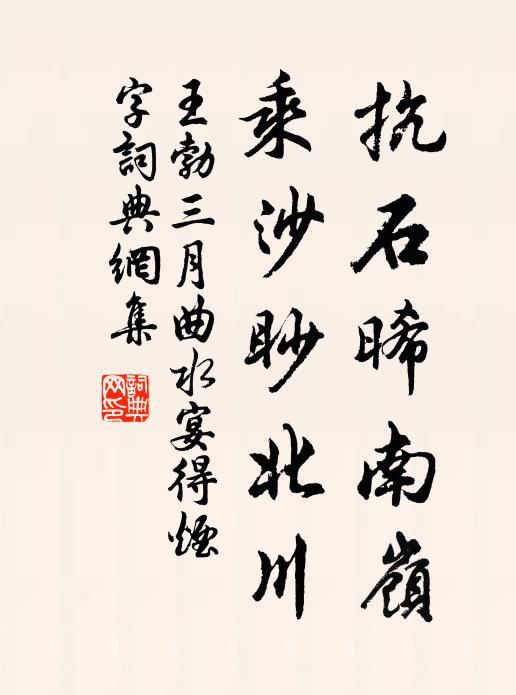 抗石晞南嶺
乘沙眇北川
王勃三月曲水宴得煙
字詞典網集
詞典
網印